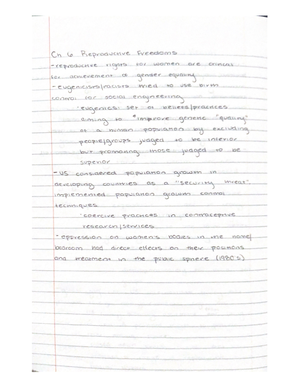 Ch 6 Reproductive Freedoms
-reproductive rights for women are critical
for achievement of gender equality
-eugenicists/racists tried to use birth
control for social engineering
'eugenics: set of beliefs/practices
aiming to "improve genetic "quality"
of a human population by excluding
people/groups judged to be inferior
but promoting those judged to be
superior
-US considered population growth in
developing countries as a "security threat"
implemented population growth control
techniques
'coercive practices in contraceptive
research/services
-oppression on women's bodies in the home/
bedroom has direct effects on their positions
and treatment in the public sphere